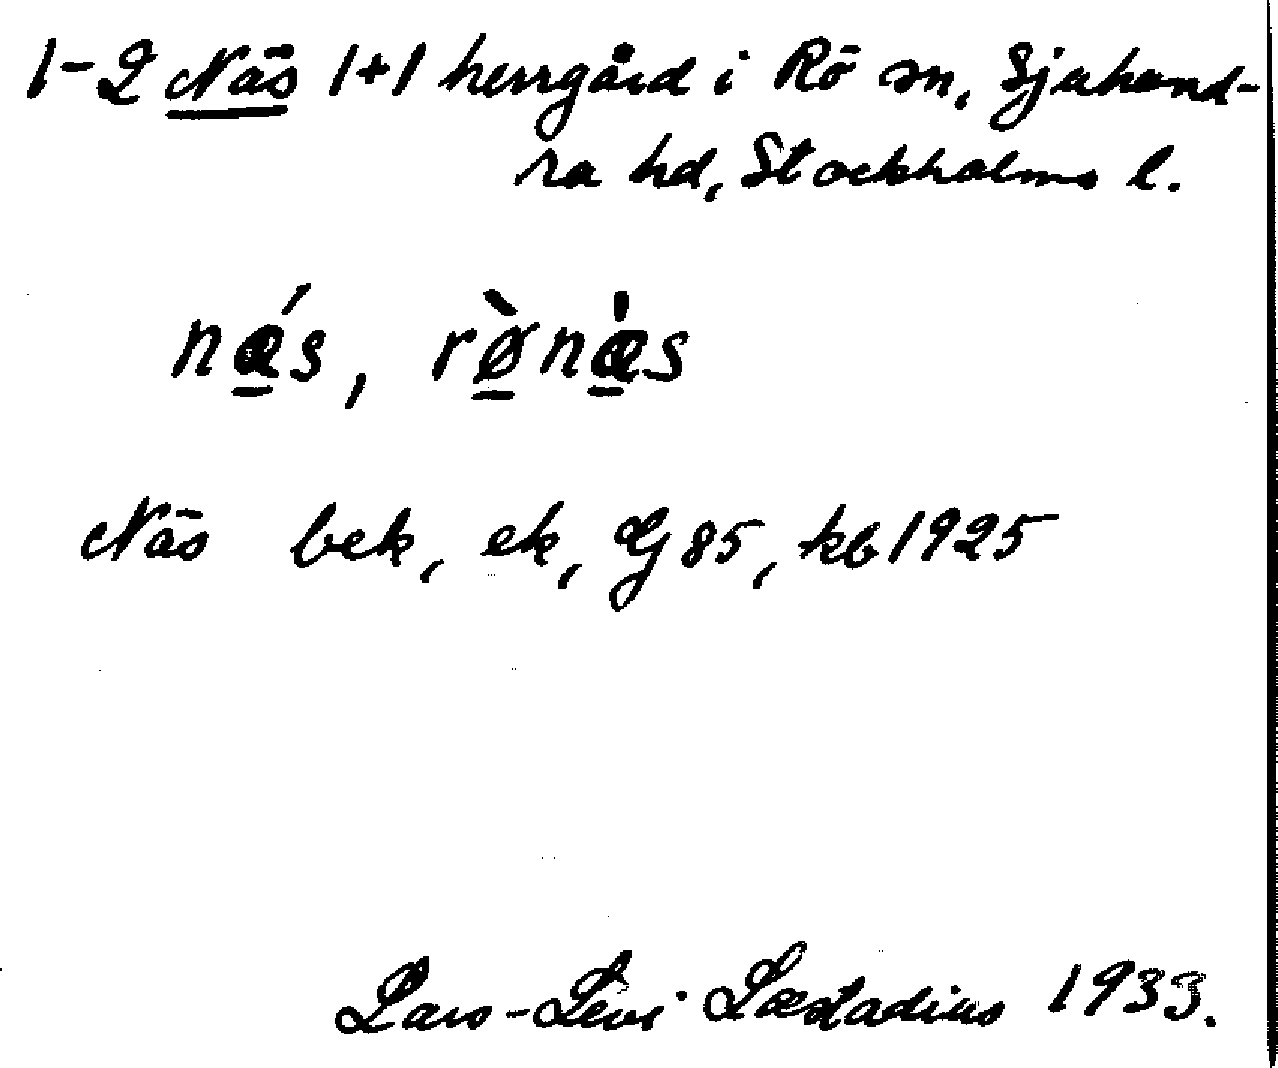 1-2 Näs 1+1 herrgård i Rö sn, Sjuhund-
ra hd, Stockholms l.
nǽ̲s, rø̲̀næ̲̍s
Näs bek, ek, GJ 85, kb 1925
Lars-Levi Læstadius 1933.